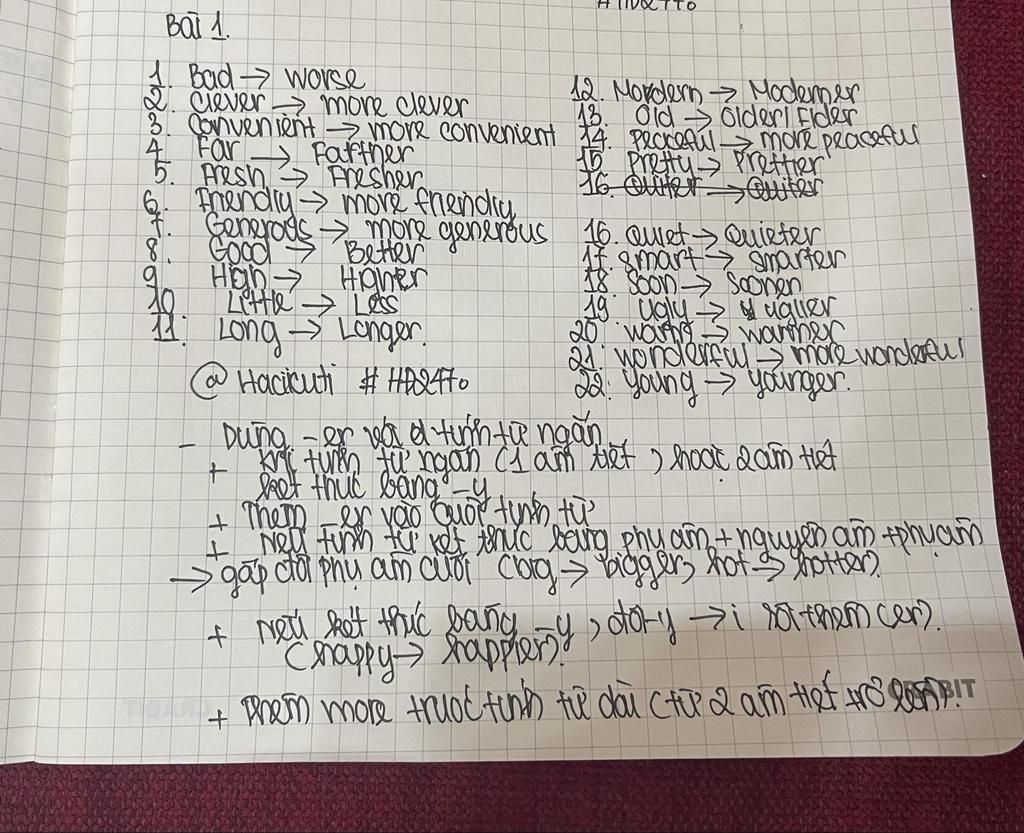 # HD2470
Bài 1.
1. Bad → worse
2. Clever → more clever
3. Convenient → more convenient
4. Far → Farther
5. Fresh → Fresher
6. Friendly → more friendly
7. Generous → more generous
8. Good → Better
9. High → Higher
10. Little → Less
11. Long → Longer.
@ Hacikuti # HD2470
12. Mordern → Moderner
13. Old → Older/ Elder
14. Peaceful → more peaceful
15. Pretty → Prettier
16. Quiter → Quiter
16. Quiet → Quieter
17. Smart → Smarter
18. Soon → Sooner
19. Ugly → uglier
20. warm → warmer
21. wonderful → more wonderful
22. Young → younger.
- Dùng -er với tính từ ngắn
+ Khi tính từ ngắn (1 âm tiết, hoặc 2 âm tiết
kết thúc bằng -y
+ Thêm -er vào cuối tính từ
+ Nếu tính từ kết thúc bằng phụ âm + nguyên âm + phụ âm
→ gấp đôi phụ âm cuối (big → bigger, hot → hotter).
+ Nếu kết thúc bằng -y, đổi -y → i rồi thêm (er).
(happy → happier).
+ Thêm more trước tính từ dài (từ 2 âm tiết trở lên).
CRABIT